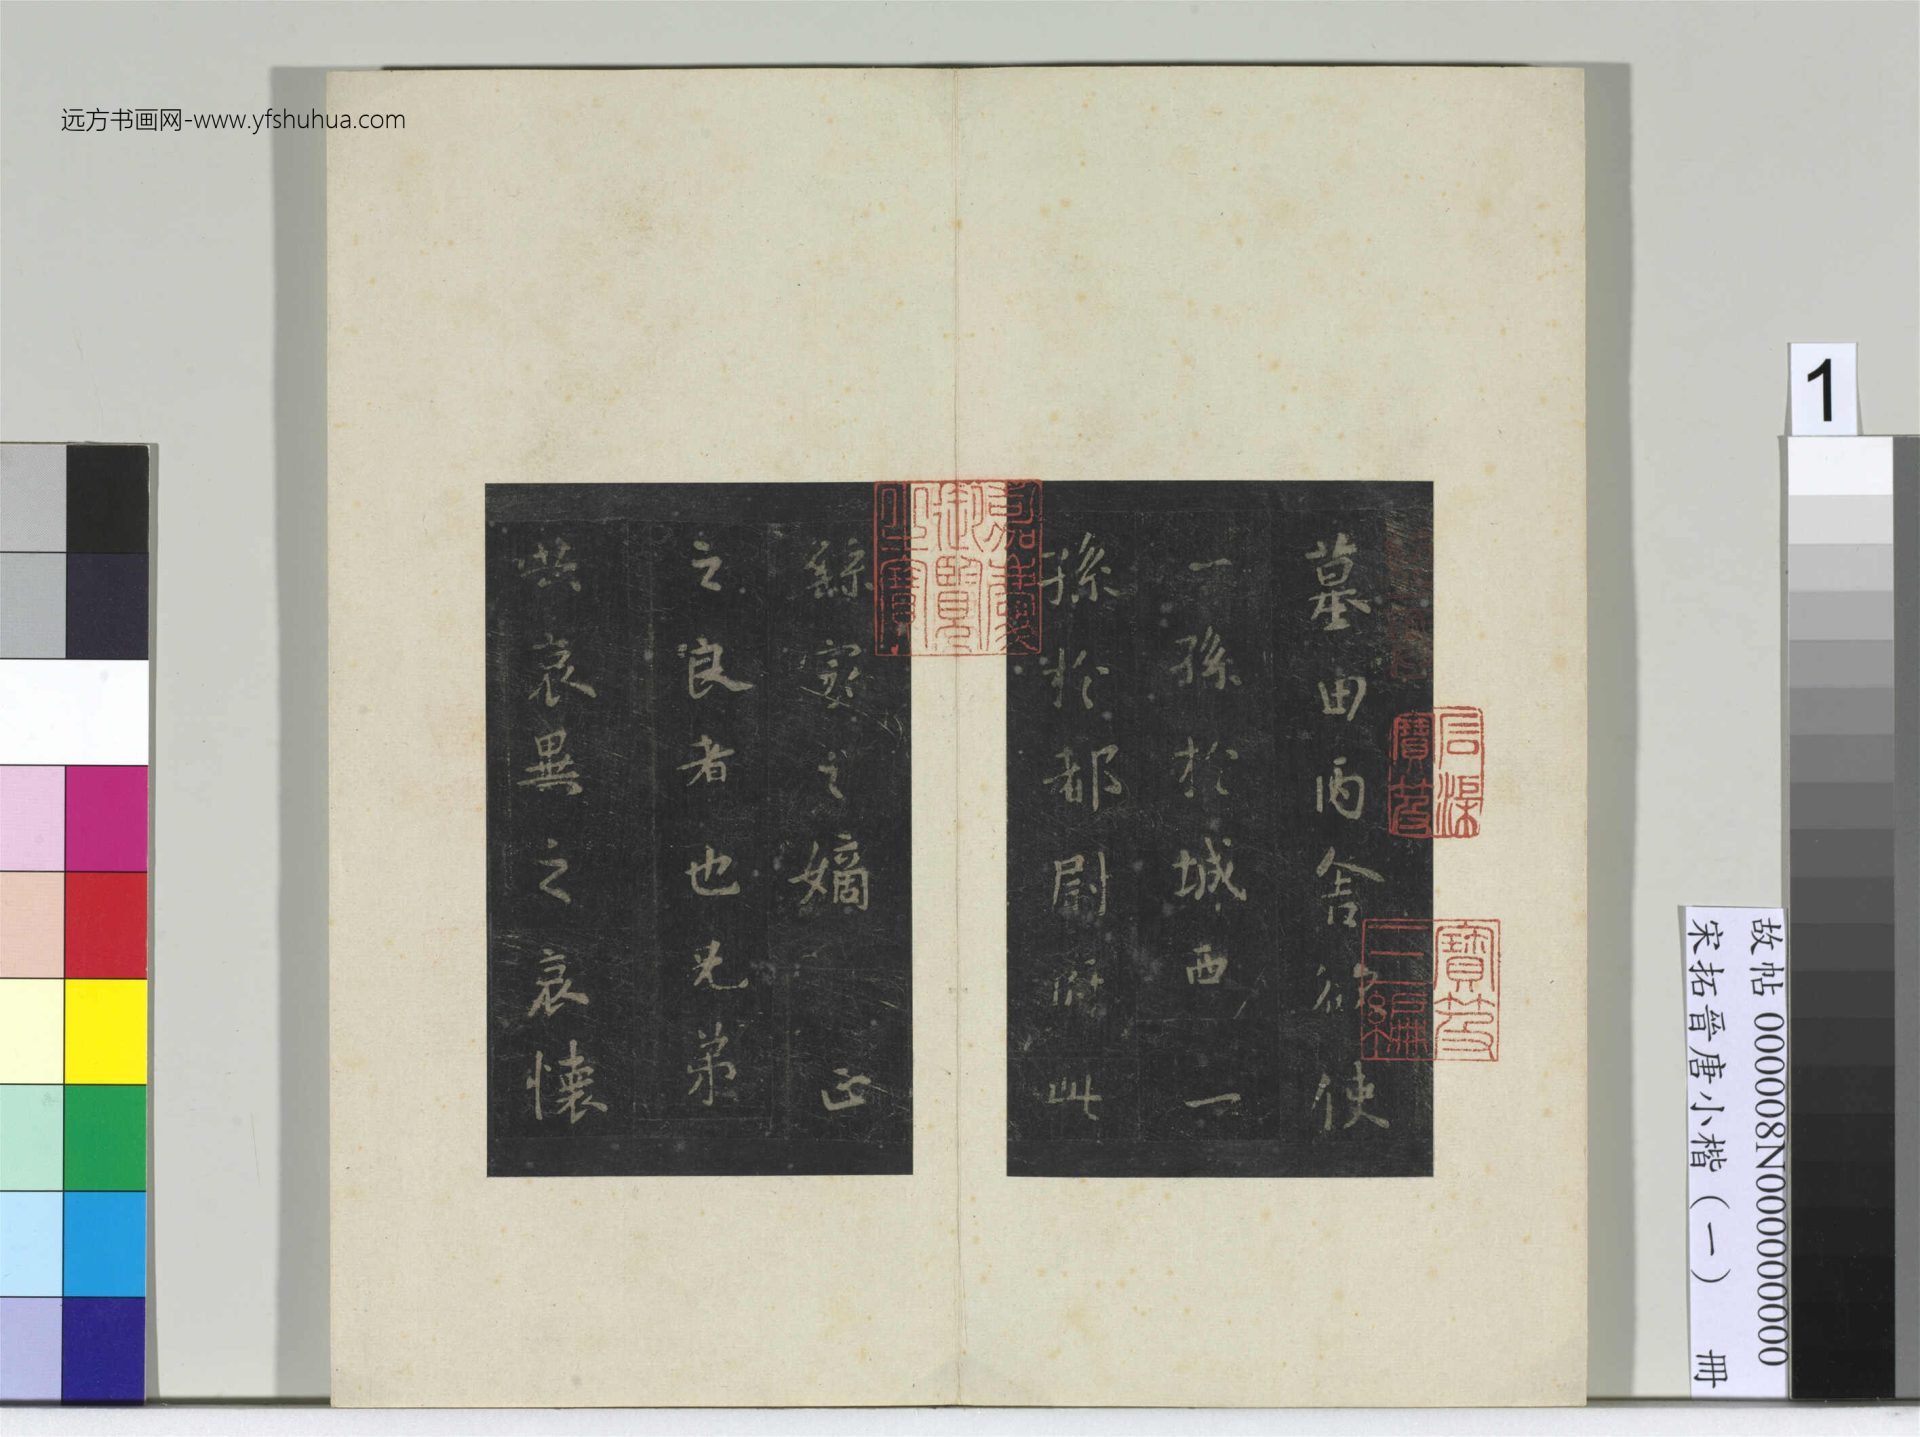 远方书画网-www.yfshuhua.com
1
墓田丙舍欲使
一孫於城西一
孫於都尉府此
繇家之嫡正
之良者也兄弟
共哀異之哀懷
嘉慶御覽之寶
信渠寶笈
寶笈三編
故帖 000008N000000000
宋拓晉唐小楷（一） 冊